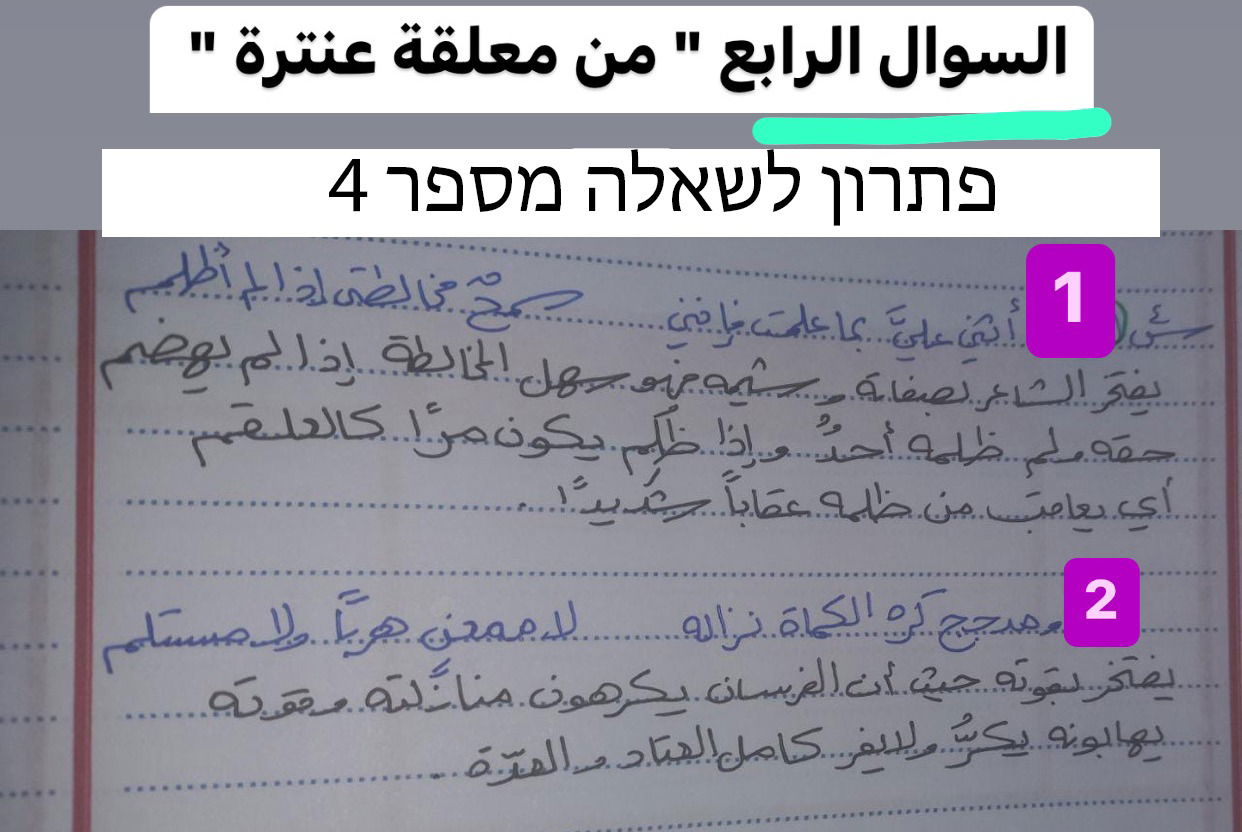 السوال الرابع " من معلقة عنترة "
פתרון לשאלה מספר 4
1
أثني عليَّ بما علمت فإنني سمحٌ مخالطتي إذا لم أُظلم
يفتخر الشاعر بصفاته وشيمه فهو سهل المخالطة إذا لم يهضم
حقه ولم يظلمه أحدٌ وإذا ظُلم يكون مرًّا كالعلقم
أي يعاقب من ظلمه عقاباً شديدًا.
2
ومدجج كره الكماة نزاله لا ممعن هربًا ولا مستسلم
يفتخر بقوته حيث أن الفرسان يكرهون منازلته وقوته
يهابونه يكرُّ ولا يفر كامل العتاد والعدّة.